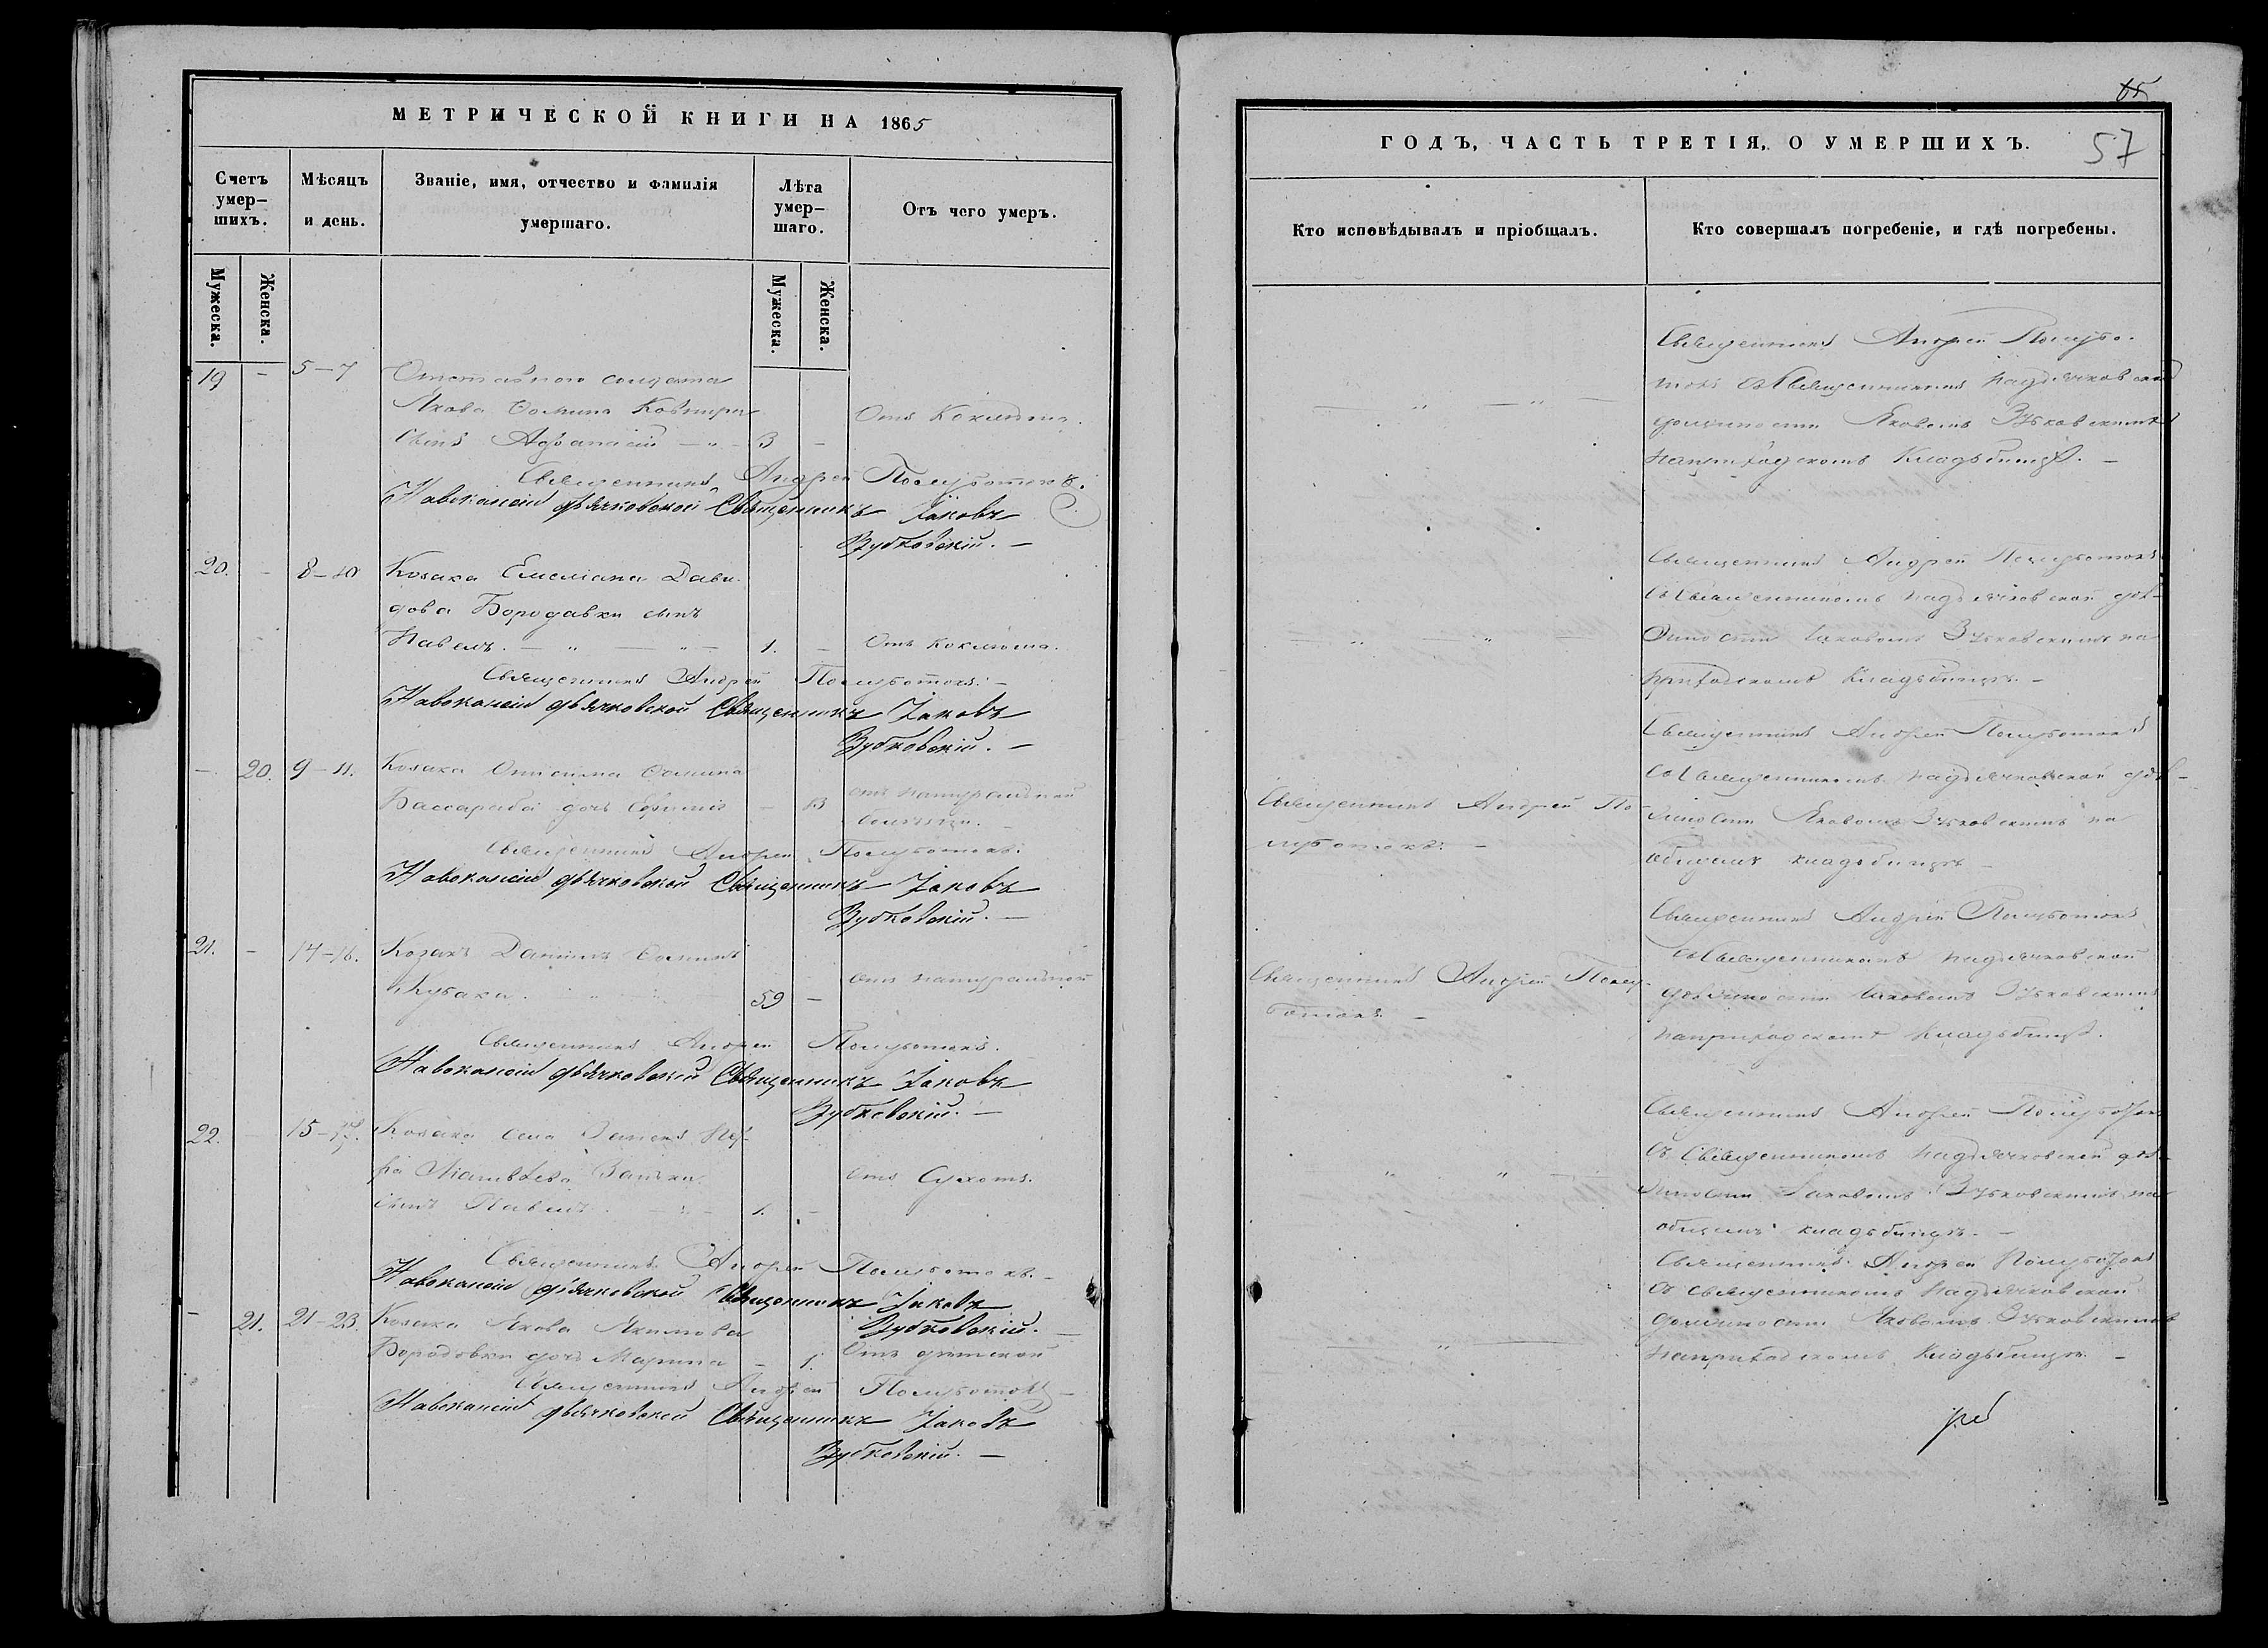 МЕТРИЧЕСКОЙ КНИГИ НА 1865
Счетъ умер-шихъ.
Мѣсяцъ и день.
Званіе, имя, отчество и фамилія умершаго.
Лѣта умер-шаго.
Отъ чего умеръ.
Мужеска.
Женска.
Мужеска.
Женска.
19 - 5-7 Отставного солдата
Якова Ѳомина
сынъ Афанасій — „ - 3 - Отъ Коклюша.
Священникъ Андрей Полуботокъ.
дьячковской Священникъ Іаковъ
Зубковскій. —
20. - 8-10 Козака Емеліана Дави-
дова Бородавки сынъ
Павелъ. — „ — „ — 1. - Отъ коклюша.
Священникъ Андрей Полуботокъ. —
дьячковской Священникъ Іаковъ
Зубковскій. —
- 20. 9-11. Козака Онисима Ѳомина
Бассараба дочь - отъ натуральной
Священникъ Андрей Полуботокъ.
дьячковской Священникъ Іаковъ
Зубковскій. —
21. - 14-16. Козакъ Даніилъ Ѳоминъ
59 - отъ натуральной
Священникъ Андрей Полуботокъ.
дьячковской Священникъ Іаковъ
Зубковскій. —
22. 15- Козака
Матвѣева
сынъ Павелъ. 1. - отъ Сухотъ.
Священникъ Андрей Полуботокъ. —
дьячковской Священникъ Іаковъ
Зубковскій. —
- 21. 21-23. Козака Якова Якимова
Бородовки дочь Марина - 1. Отъ дѣтской
Священникъ Андрей Полуботокъ —
дьячковской Священникъ Іаковъ
Зубковскій. —
57
ГОДЪ, ЧАСТЬ ТРЕТІЯ, О УМЕРШИХЪ.
Кто исповѣдывалъ и пріобщалъ.
Кто совершалъ погребеніе, и гдѣ погребены.
Священникъ Андрей Полубо-
токъ съ Священникомъ на дьячковской
должности Яковомъ Зубковскимъ
на приходскомъ Кладбищѣ. —
Священникъ Андрей Полуботокъ
съ Священникомъ на дьячковской дол-
жности Іаковомъ Зубковскимъ на
приходскомъ Кладбищѣ. —
Священникъ Андрей По-
луботокъ. —
Священникъ Андрей Полуботокъ
съ Священникомъ на дьячковской дол-
жности Яковомъ Зубковскимъ на
общемъ кладбищѣ —
Священникъ Андрей Полу-
ботокъ. —
Священникъ Андрей Полуботокъ
съ Священникомъ на дьячковской
должности Іаковомъ Зубковскимъ
на приходскомъ Кладбищѣ.
Священникъ Андрей Полуботокъ
съ Священникомъ на дьячковской дол-
жности Іаковомъ Зубковскимъ на
общемъ кладбищѣ. —
Священникъ Андрей Полуботокъ
съ Священникомъ на дьячковской
должности Яковомъ Зубковскимъ
на приходскомъ Кладбищѣ. —